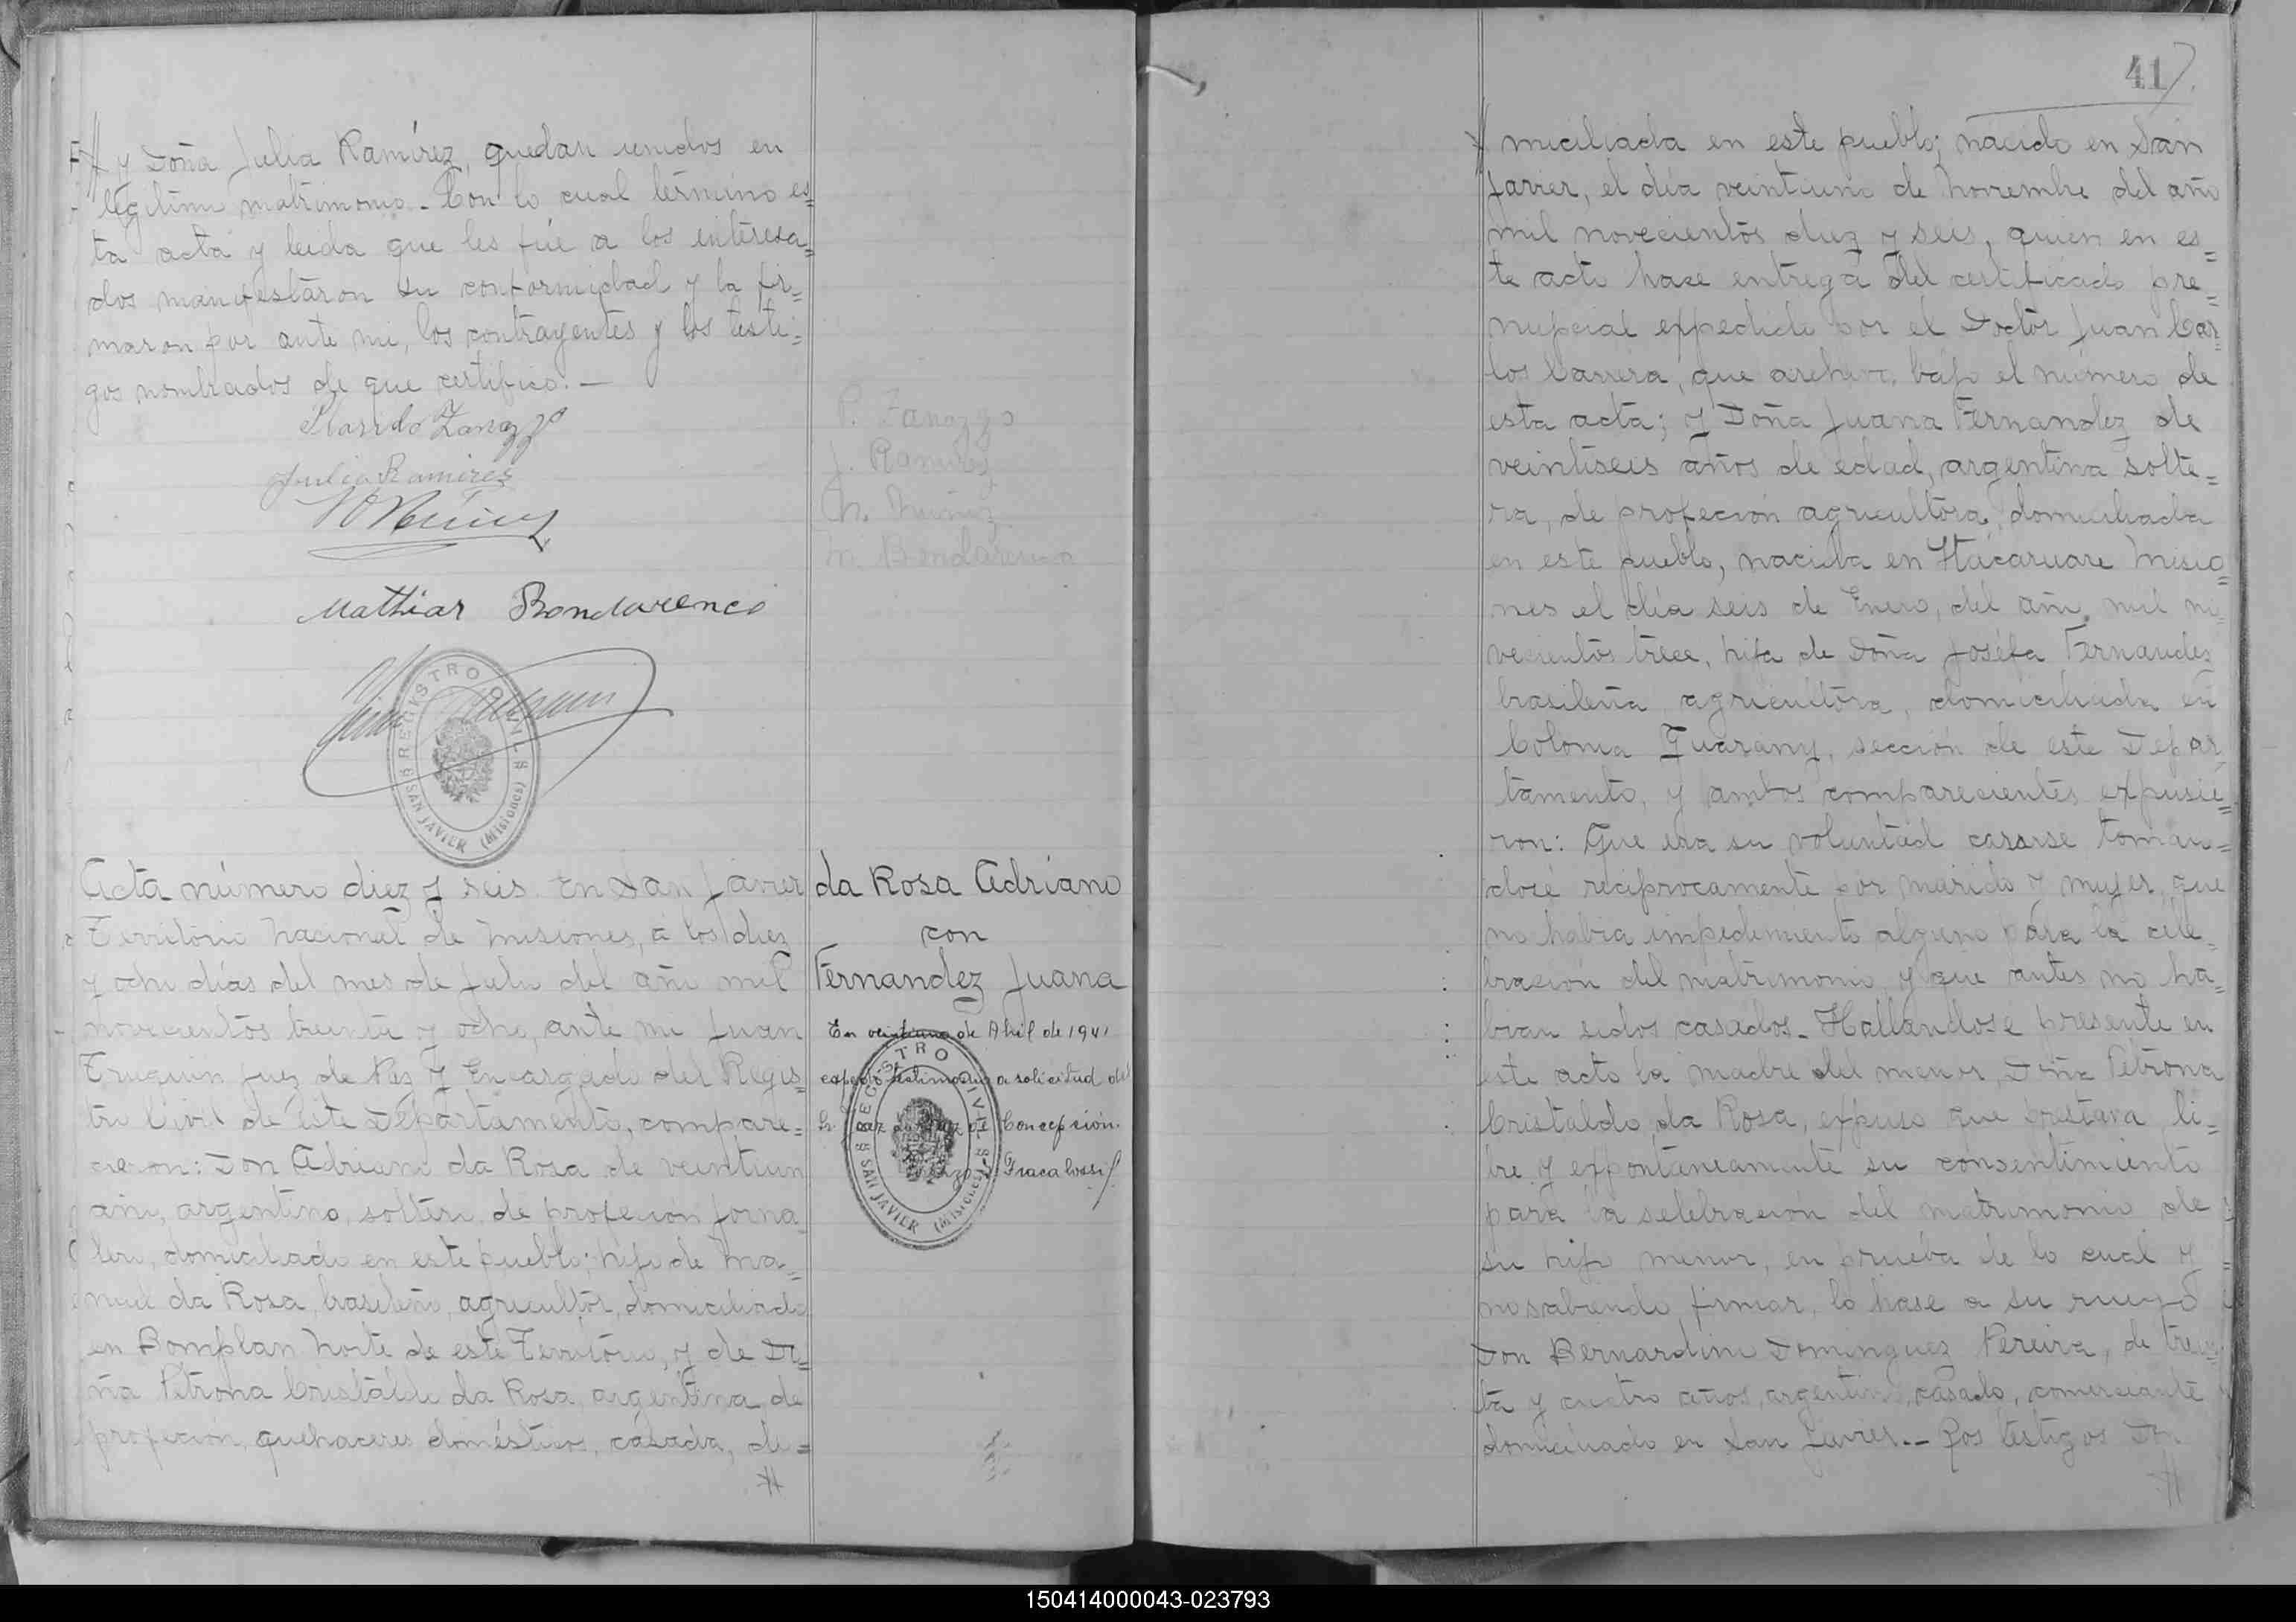 y Doña Julia Ramírez, quedan unidos en
legítimo matrimonio.- Con lo cual término es=
ta acta y leida que les fúe a los interesa=
dos manifestaron su conformidad y la fir=
maron por ante mi, los contrayentes y los testi=
gos nombrados de que certifico.—
Plasido Zarazzo
Julia Ramirez
Mathias Bondarenco
REGISTRO CIVIL
SAN JAVIER (Misiones)
P. Zanazzo
J. Ramirez
N. Nuñez
M. Bondarenco
Acta número diez y seis. En San Javier
Territorio Nacional de Misiones, a los diez
y ocho días del mes de Julio del año mil
novecientos treinta y ocho, ante mi Juan
Juez de Paz y Encargado del Regis=
tro Civil de este Departamento, compare=
cieron: Don Adriano da Rosa de veintiun
año, argentino, soltero, de profeción jorna
lero, domiciliado en este pueblo; hijo de Ma=
nuel da Rosa, brasileño, agricultor, domiciliado
en Bomplan Norte de este Territorio, y de Do=
ña Petrona Cristaldo da Rosa, argentina, de
profeción, quehaceres domésticos, casada, do=
da Rosa Adriano
con
Fernandez Juana
En veintiuno de Abril de 1941
expedo testimonio a solicitud del
Sr. Juez de Paz de Concepción.
Fracalossi
REGISTRO CIVIL
SAN JAVIER (Misiones)
41
miciliada en este pueblo; nacido en San
Javier, el día veintiuno de Noviembre del año
mil novecientos diez y seis, quien en es=
te acto hase entrega del certificado pre=
nupcial expedido por el Doctor Juan Car=
los Carrera, que archivo bajo el número de
esta acta; y Doña Juana Fernandez de
veintiseis años de edad, argentina solte=
ra, de profeción agricultora, domiciliada
en este pueblo, nacida en Itacaruare Misio=
nes el día seis de Enero, del año mil no
vecientos trece, hija de Doña Joséfa Fernandez
brasileña agricultora, domiciliada en
Colonia Guarany, sección de este Depar
tamento, y ambos comparecientes expusie=
ron: Que era su voluntad casarse toman=
dose reciprocamente por marido y mujer, que
no habia impedimento alguno para la cele=
bración del matrimonio y que antes no ha=
bian sidos casados.- Hallandose presente en
este acto la madre del menor, Doña Petrona
Cristaldo da Rosa, expuso que prestava li=
bre y expontaneamente su consentimiento
para la selebración del matrimonio de
su hijo menor, en prueba de lo cual y
no sabiendo firmar, lo hase a su ruego
Don Bernardino Dominguez Pereira, de trein=
ta y cuatro años, argentino, casado, comerciante
domiciliado en San Javier.- Los testigos Don
150414000043-023793